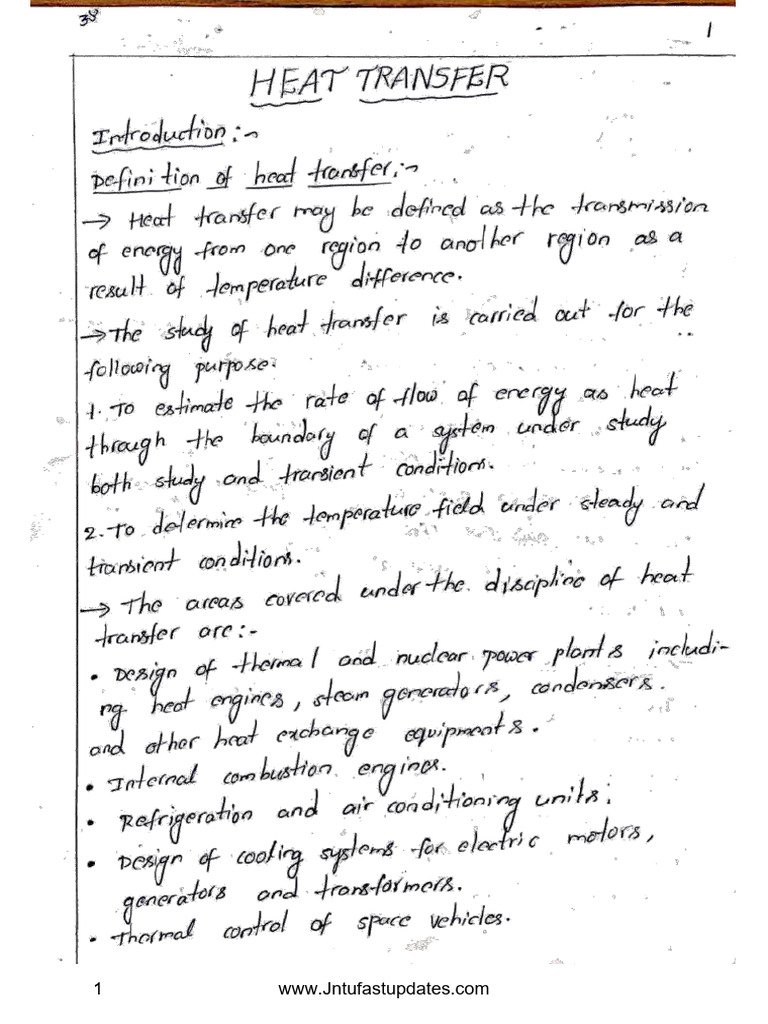 1
HEAT TRANSFER
Introduction:-
Definition of heat transfer:-
→ Heat transfer may be defined as the transmission
of energy from one region to another region as a
result of temperature difference.
→ The study of heat transfer is carried out for the
following purpose.
1. To estimate the rate of flow of energy as heat
through the boundary of a system under study
both study and transient conditions.
2. To determine the temperature field under steady and
transient conditions.
→ The areas covered under the discipline of heat
transfer are:-
• Design of thermal and nuclear power plants includi-
ng heat engines, steam generators, condensers.
and other heat exchange equipments.
• Internal combustion engines.
• Refrigeration and air conditioning units.
• Design of cooling systems for electric motors,
generators and transformers.
• Thermal control of space vehicles.
1 www.Jntufastupdates.com